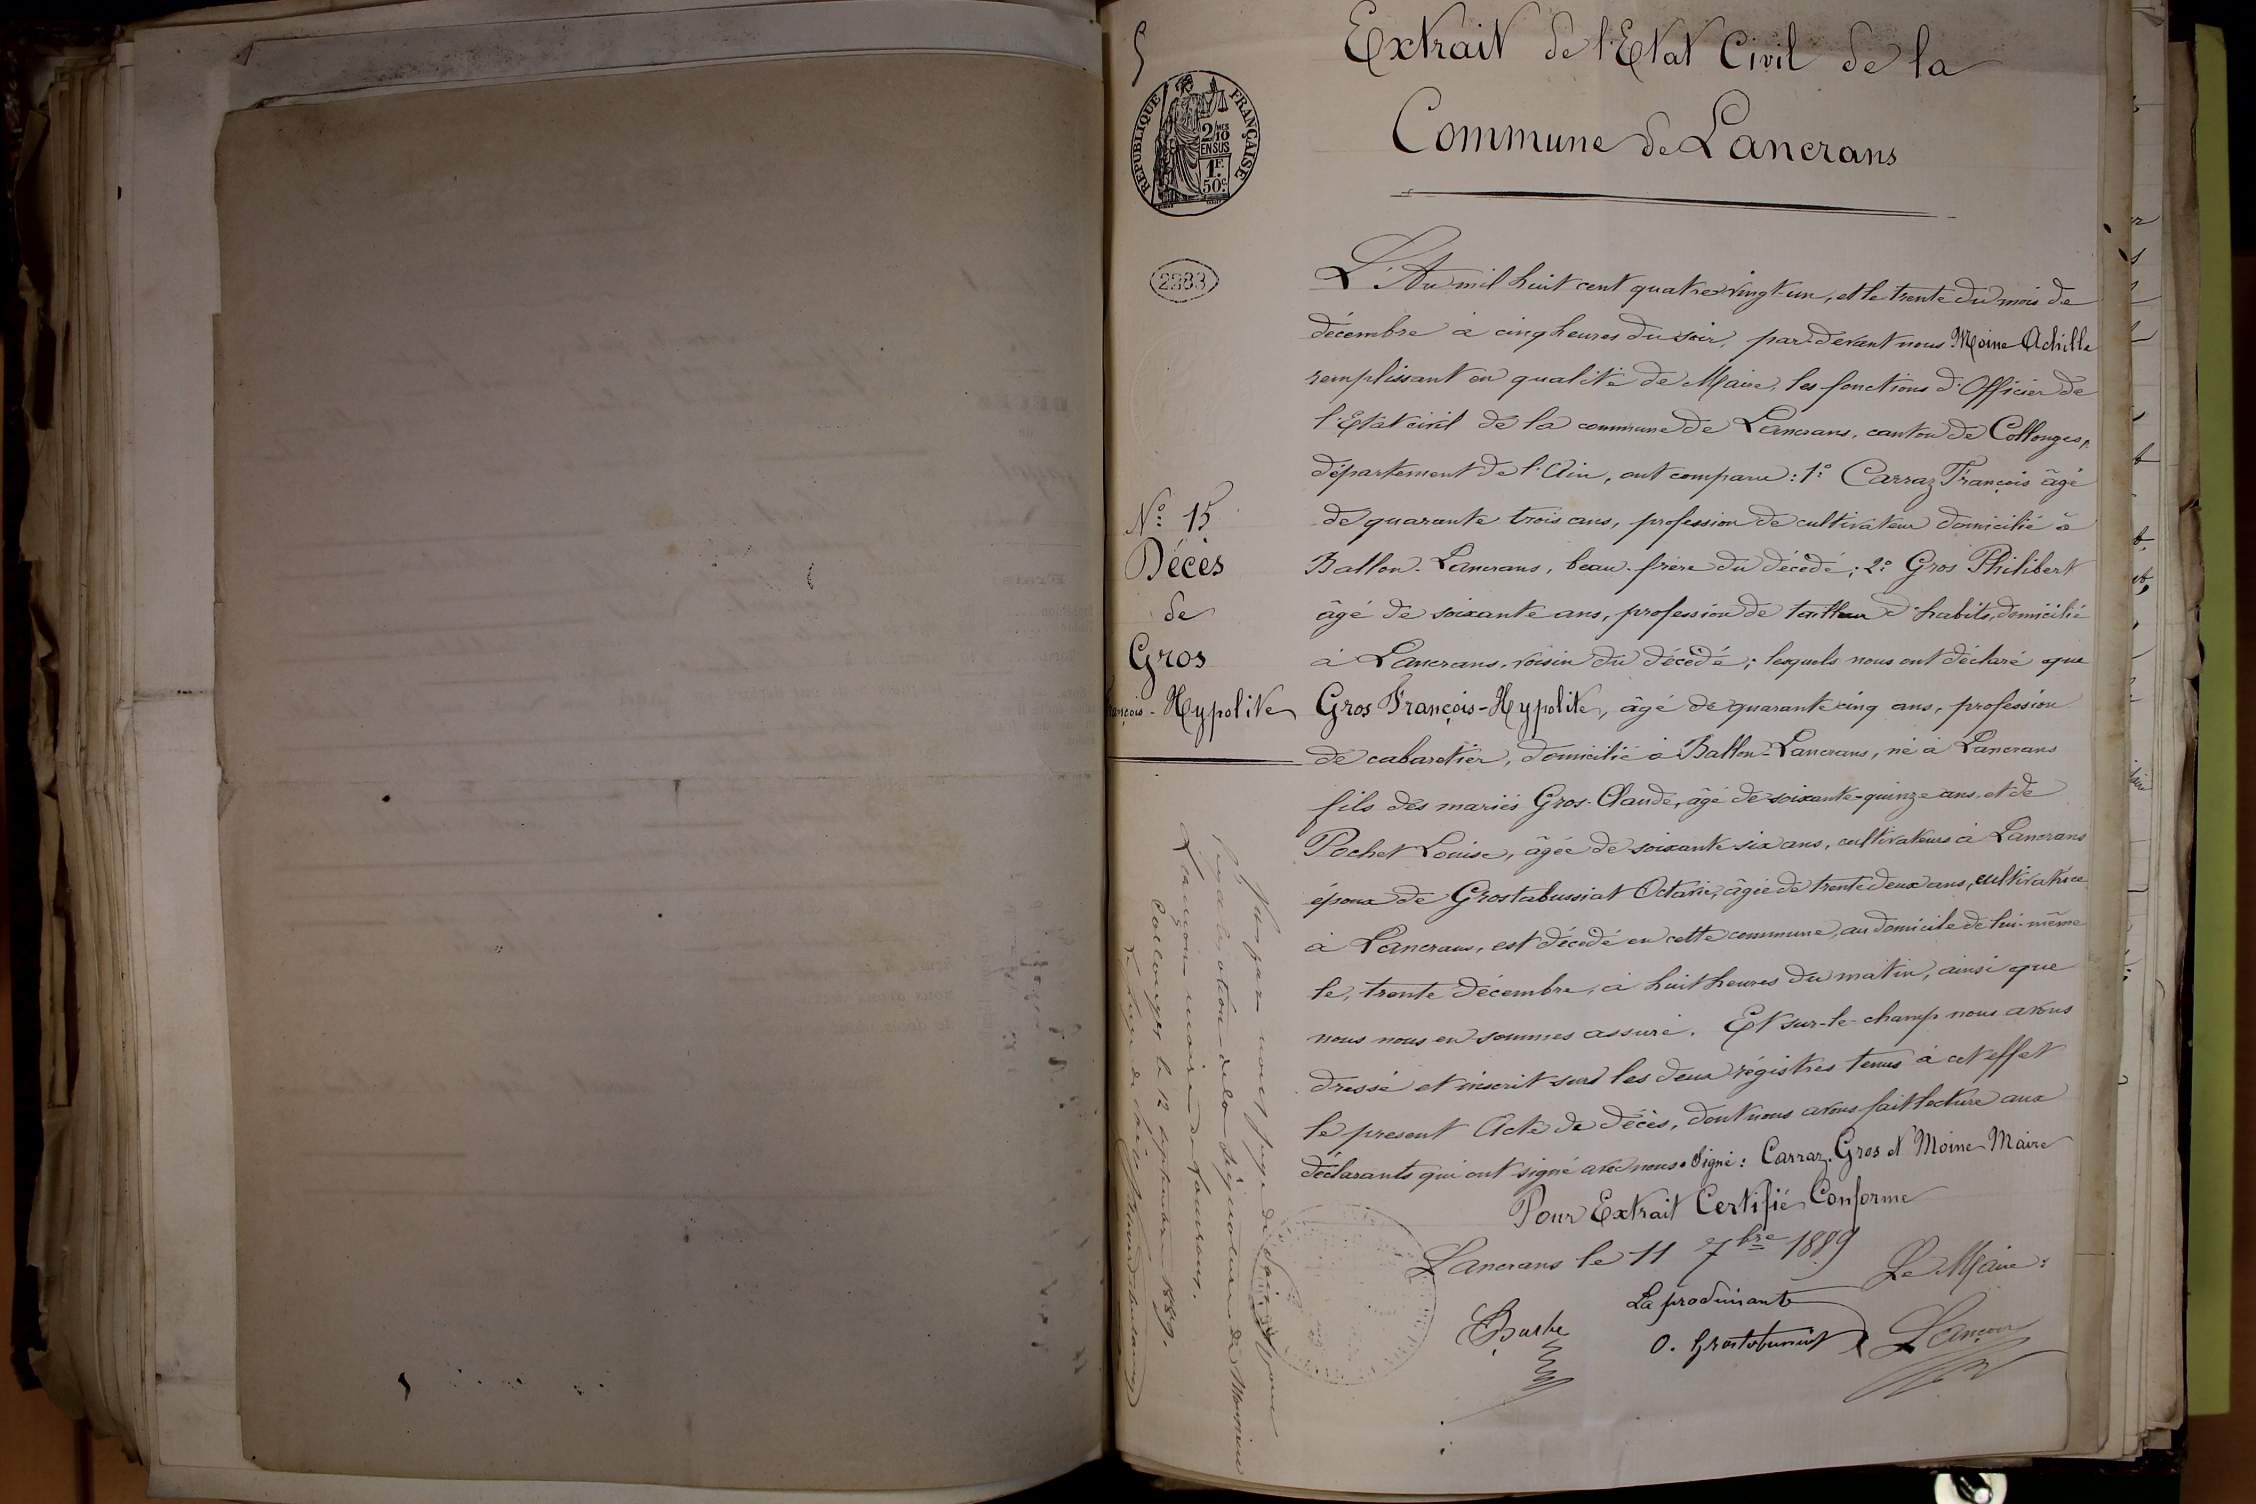 5
Extrait de l'Etat Civil de la
Commune de Lancrans
RÉPUBLIQUE FRANÇAISE
2/10 MES
EN SUS
1F.
50c
2983
L'An mil huit cent quatre vingt-un, et le trente du mois de
décembre à cinq heures du soir, par-devant nous Moine Achille
remplissant en qualité de Maire, les fonctions d'Officier de
l'Etat civil de la commune de Lancrans, canton de Collonges,
département de l'Ain, ont comparu : 1º Carraz François âgé
de quarante trois ans, profession de cultivateur domicilié à
Ballon-Lancrans, beau-frère du décédé ; 2º Gros Philibert
âgé de soixante ans, profession de tailleur d'habits, domicilié
à Lancrans, voisin du décédé ; lesquels nous ont déclaré que
Gros François-Hypolite, âgé de quarante cinq ans, profession
de cabaretier, domicilié à Ballon-Lancrans, né à Lancrans
fils des mariés Gros-Claude, âgé de soixante-quinze ans et de
Pochet Louise, âgée de soixante six ans, cultivateurs à Lancrans
époux de Grostabussiat Octavie, âgée de trente deux ans, cultivatrice
à Lancrans, est décédé en cette commune, au domicile de lui-même
le, trente décembre, à huit heures du matin, ainsi que
nous nous en sommes assuré. Et sur-le-champ nous avons
dressé et inscrit sur les deux régistres tenus à cet effet
le présent Acte de décès, dont nous avons fait lecture aux
déclarants qui ont signé avec nous. Signé : Carraz, Gros et Moine Maire
Pour Extrait Certifié Conforme
Lancrans le 11 7bre 1889
Le Maire :
La produisante
O. Grostabussiat
Lançon
Nº 15
Décès
de
Gros
François-Hypolite
Vu par nous juge de paix pour
légalisation de la signature de Monsieur
Lançon maire de Lancrans.
Collonges le 12 septembre 1889.
Le Juge de Paix